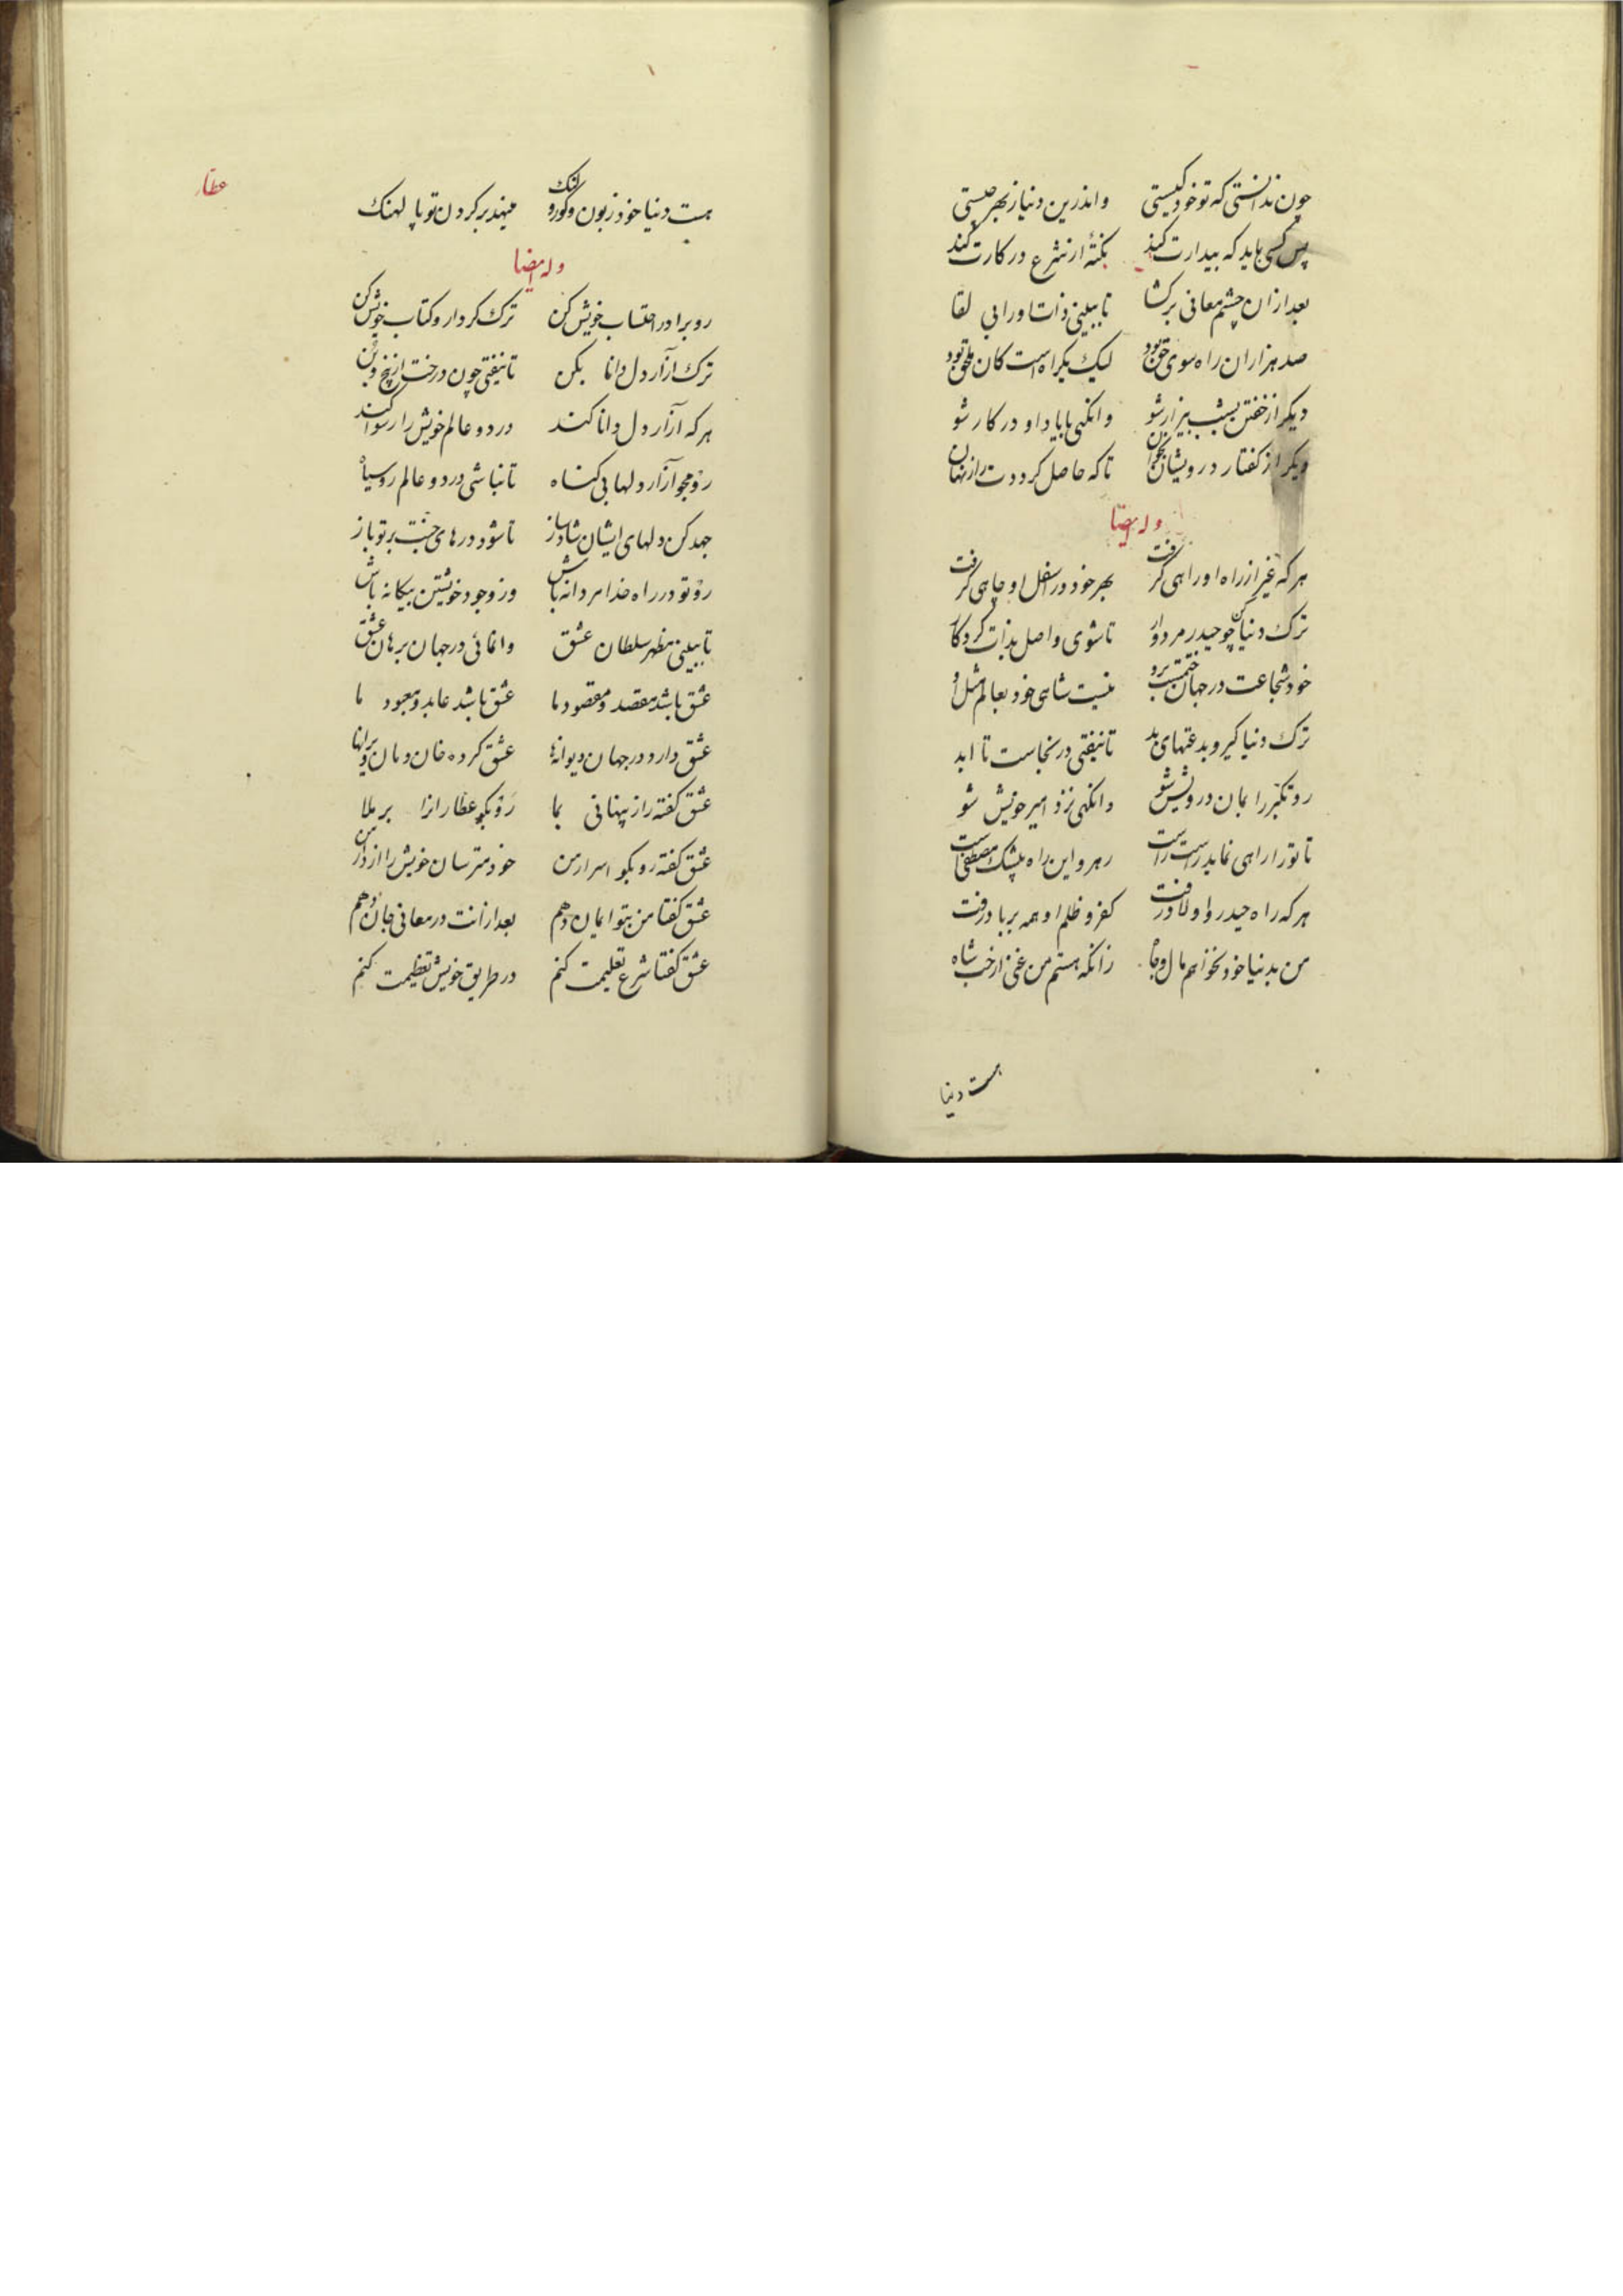 چون ندانستی که تو خود کیستی واندرین دنیا ز بهر چیستی
پس کسی باید که بیدارت کند نکتهٔ از شرع در کارت کند
بعد از آن چشم معانی برکشا تا ببینی ذات او را بی لقا
صد هزاران راه سوی حق بود لیک یکراه است کان ملحق بود
دیکر از خفتن بشب بیزار شو وانکهی با یاد او در کار شو
دیکر از کفتار درویشان بخوان تا که حاصل کرددت راز نهان
وله ایضا
هر که غیر از راه او راهی کرفت بهر خود در اسفل او چاهی کرفت
ترک دنیا کن چو حیدر مردوار تا شوی واصل بذات کردکار
خود شجاعت در جهان ختمست برو نیست شاهی خود بعالم مثل او
ترک دنیا کیر و بدعتهای بد تا نیفتی در نجاست تا ابد
رو تکبر را بمان درویش شو وانکهی نزد امیر خویش شو
تا ترا راهی نماید راست راست رهرو این راه بیشک مصطفی است
هر که راه حیدر او را ولا در رفت کفر و ظلم او همه بر باد رفت
من بدنیا خود نخواهم مال و جاه زانکه هستم من غنی از حب شاه
هست دنیا
عطار
هست دنیا خود زبون و کور و لنک مینهد بر کردن تو پا لهنک
وله ایضا
رو برادر احتساب خویش کن ترک کردار و کتاب خویش کن
ترک آزار دل دانا بکن تا نیفتی چون درخت از بیخ و بن
هر که آزار دل دانا کند در دو عالم خویش را رسوا کند
رو مجو آزار دلها بی کناه تا نباشی در دو عالم روسیاه
جهد کن دلهای ایشان شاد ساز تا شود درهای جنت بر تو باز
رو تو در راه خدا مردانه باش وز وجود خویشتن بیکانه باش
تا ببینی مظهر سلطان عشق وانمائی در جهان برهان عشق
عشق باشد مقصد و مقصود ما عشق باشد عابد و معبود ما
عشق دارد در جهان دیوانها عشق کرده خان و مان ویرانها
عشق کفته راز پنهانی بما رو بکو عطار انرا بر ملا
عشق کفته رو بکو اسرار من خود مترسان خویش را از دار من
عشق کفتا من بتو ایمان دهم بعد از آنت در معانی جان دهم
عشق کفتا شرع تعلیمت کنم در طریق خویش تعظیمت کنم